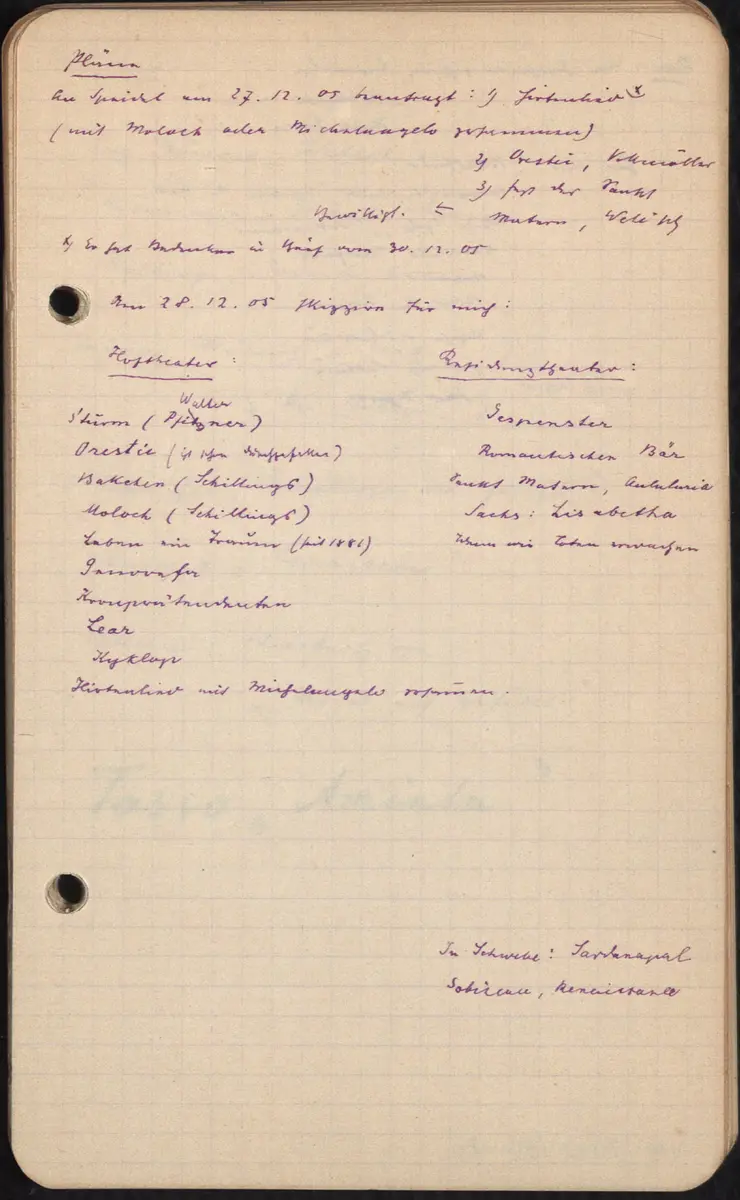 Pläne
An Speidel am 27. 12. 05 beantragt: 1) Hirtenlied x
(mit Moloch oder Michelangelo zusammen)
2) Orestie, Vollmöller
3) Fest der Sankt
Bewilligt. Matern, Welisch
x) Er hat Bedenken in Brief vom 30. 12. 05
Am 28. 12. 05 skizzire für mich:
Hoftheater: Residenztheater:
Walter
Sturm (Pfitzner) Gespenster
Orestie (ist schon durchgefallen) Romantischen Bär
Bakchen (Schillings) Sankt Matern, Aulularia
Moloch (Schillings) Sachs: Lisabetha
Leben ein Traum (seit 1881) Wenn wir Toten erwachen
Genovefa
Kronprätendenten
Lear
Kyklop
Hirtenlied mit Michelangelo zusammen.
In Schwebe: Sardanapal
Sobieski, Renaissance